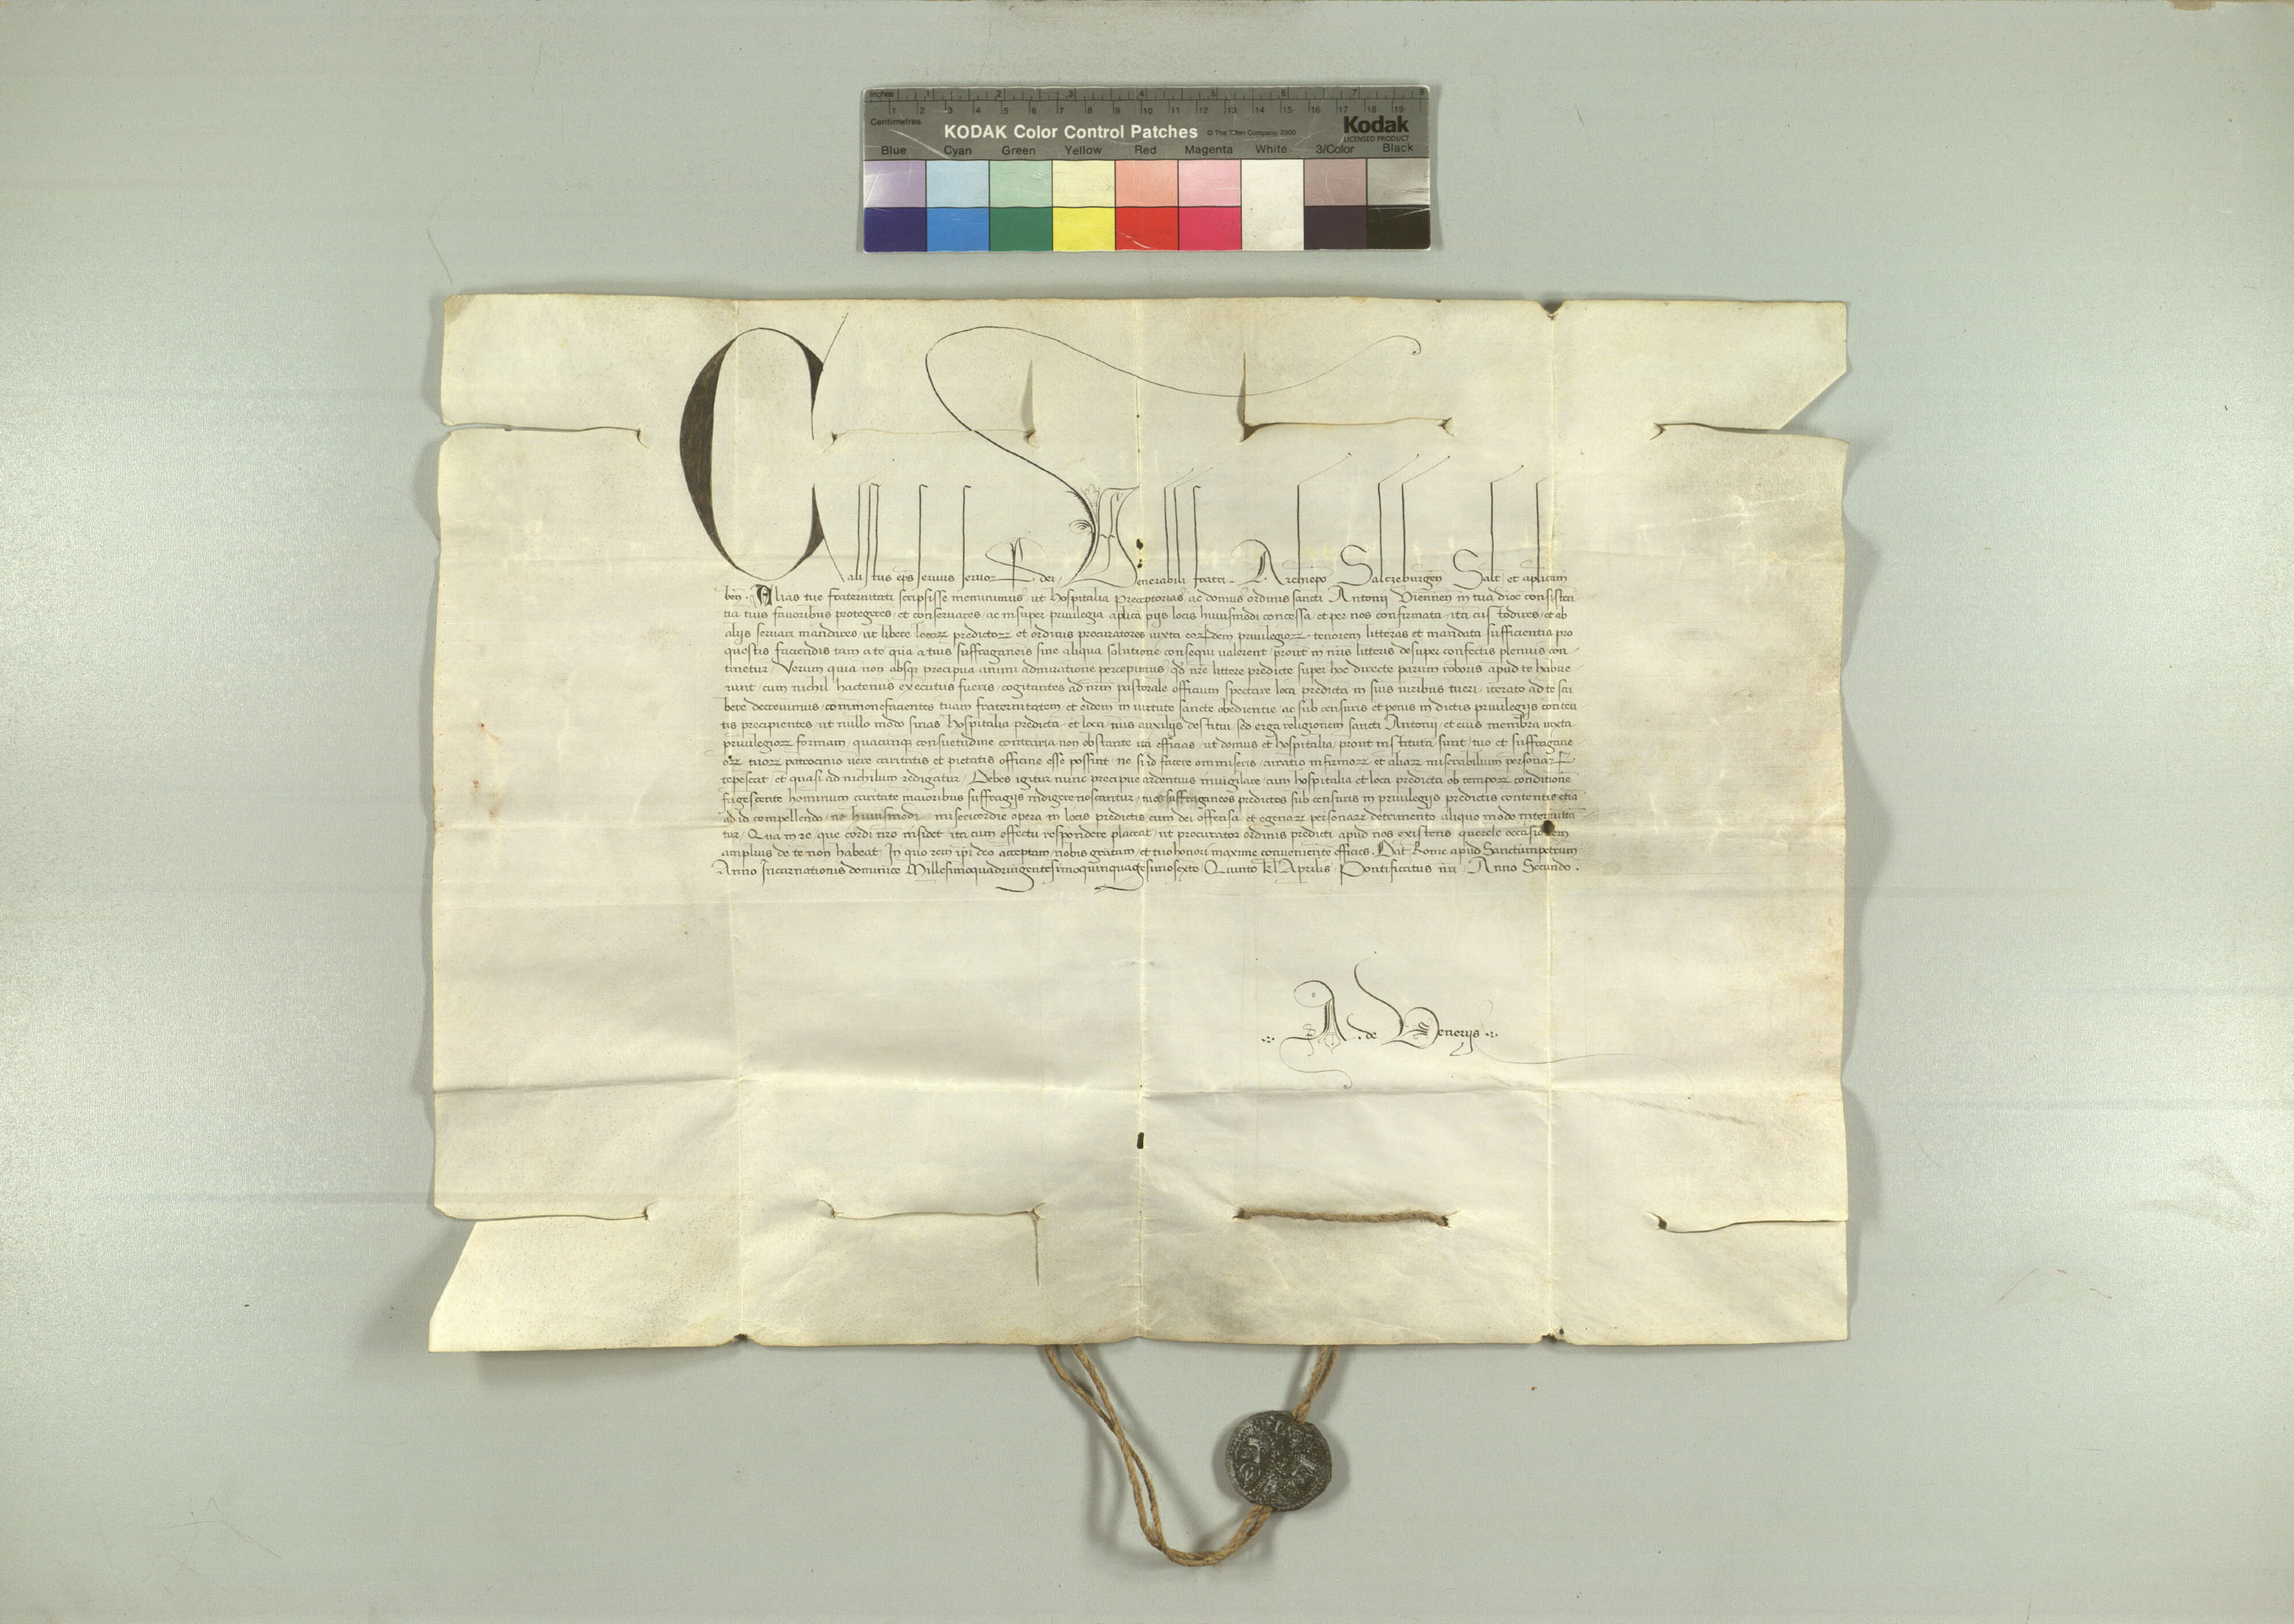 Inches 1 2 3 4 5 6 7 8
1 2 3 4 5 6 7 8 9 10 11 12 13 14 15 16 17 18 19
Centimetres
KODAK Color Control Patches © The Tiffen Company, 2000 Kodak
LICENSED PRODUCT
Blue Cyan Green Yellow Red Magenta White 3/Color Black
Calistus ep̄s servus servor dei, Venerabili fratri Archiep̄o Saltzeburgen̄ Salt̄ et aplicam
ben̄. Alias tue fraternitati scripsisse meminimus ut hospitalia preceptorias ac domus ordinis sancti Antonii Viennen̄ in tua dioc̄ consisten
tia tuis favoribus protegeres et conservares, ac insuper privilegia aplica pijs locis huiusmodi concessa et per nos confirmata ita custodires et ab
alijs servari mandares, ut libere locorꝝ predictorꝝ et ordinis procuratores iuxta eorꝝdem privilegiorꝝ tenorem litteras et mandata sufficientia pro
questis faciendis tam a te quā a tuis suffraganeis sine aliqua solutione consequi valerent, prout in nr̄is litteris desuper confectis plenius con
tinetur. Verum quia non absqꝫ precipua animi admiratione percepimus, qd̄ nr̄e littere predicte super hoc directe parum roboris apud te habue
runt, cum nichil hactenus executus fueris, cogitantes ad nr̄m pastorale officium spectare loca predicta in suis iuribus tueri, iterato ad te scri
bere decrevimus, commonefacientes tuam fraternitatem et eidem in virtute sancte obedientie ac sub censuris et penis in dictis privilegijs conten
tis precipientes, ut nullo modo sinas hospitalia predicta et loca tuis auxilijs destitui, sed erga religionem sancti Antonii et eius membra iuxta
privilegiorꝝ formam, quacunqꝫ consuetudine contraria non obstante ita efficias, ut domus et hospitalia prout instituta sunt, tuo et suffragane
orꝝ tuorꝝ patrocinio vere caritatis et pietatis officine esse possint, ne si id facere ommiseris, curatio infirmorꝝ et aliarꝝ miserabilium personarꝝ
tepescat, et quasi ad nichilum redigatur. Debes igitur nunc precipue ardentius invigilare, cum hospitalia et loca predicta ob temporꝝ conditionē
frigescente hominum caritate maioribus suffragijs indigere noscantur, tuos suffraganeos predictos sub censuris in privilegijs predictis contentis etiā
ad id compellendo, ne huiusmodi misericordie opera in locis predictis cum dei offensa et egenarꝝ personarꝝ detrimento aliquo modo intermittan
tur. Qua in re, que cordi nr̄o insidet ita cum effectu respondere placeat, ut procurator ordinis predicti apud nos existens querele occasionem
amplius de te non habeat, In quo rem ip̄i deo acceptam, nobis gratam, et tuo honori maxime convenientē efficies. Dat̄ Rome apud Sanctumpetrum
Anno Incarnationis dominice Millesimoquadringentesimoquinquagesimosexto, Quinto kl̄ Aprilis, Pontificatus nr̄i Anno Secundo.
A. de Venerijs